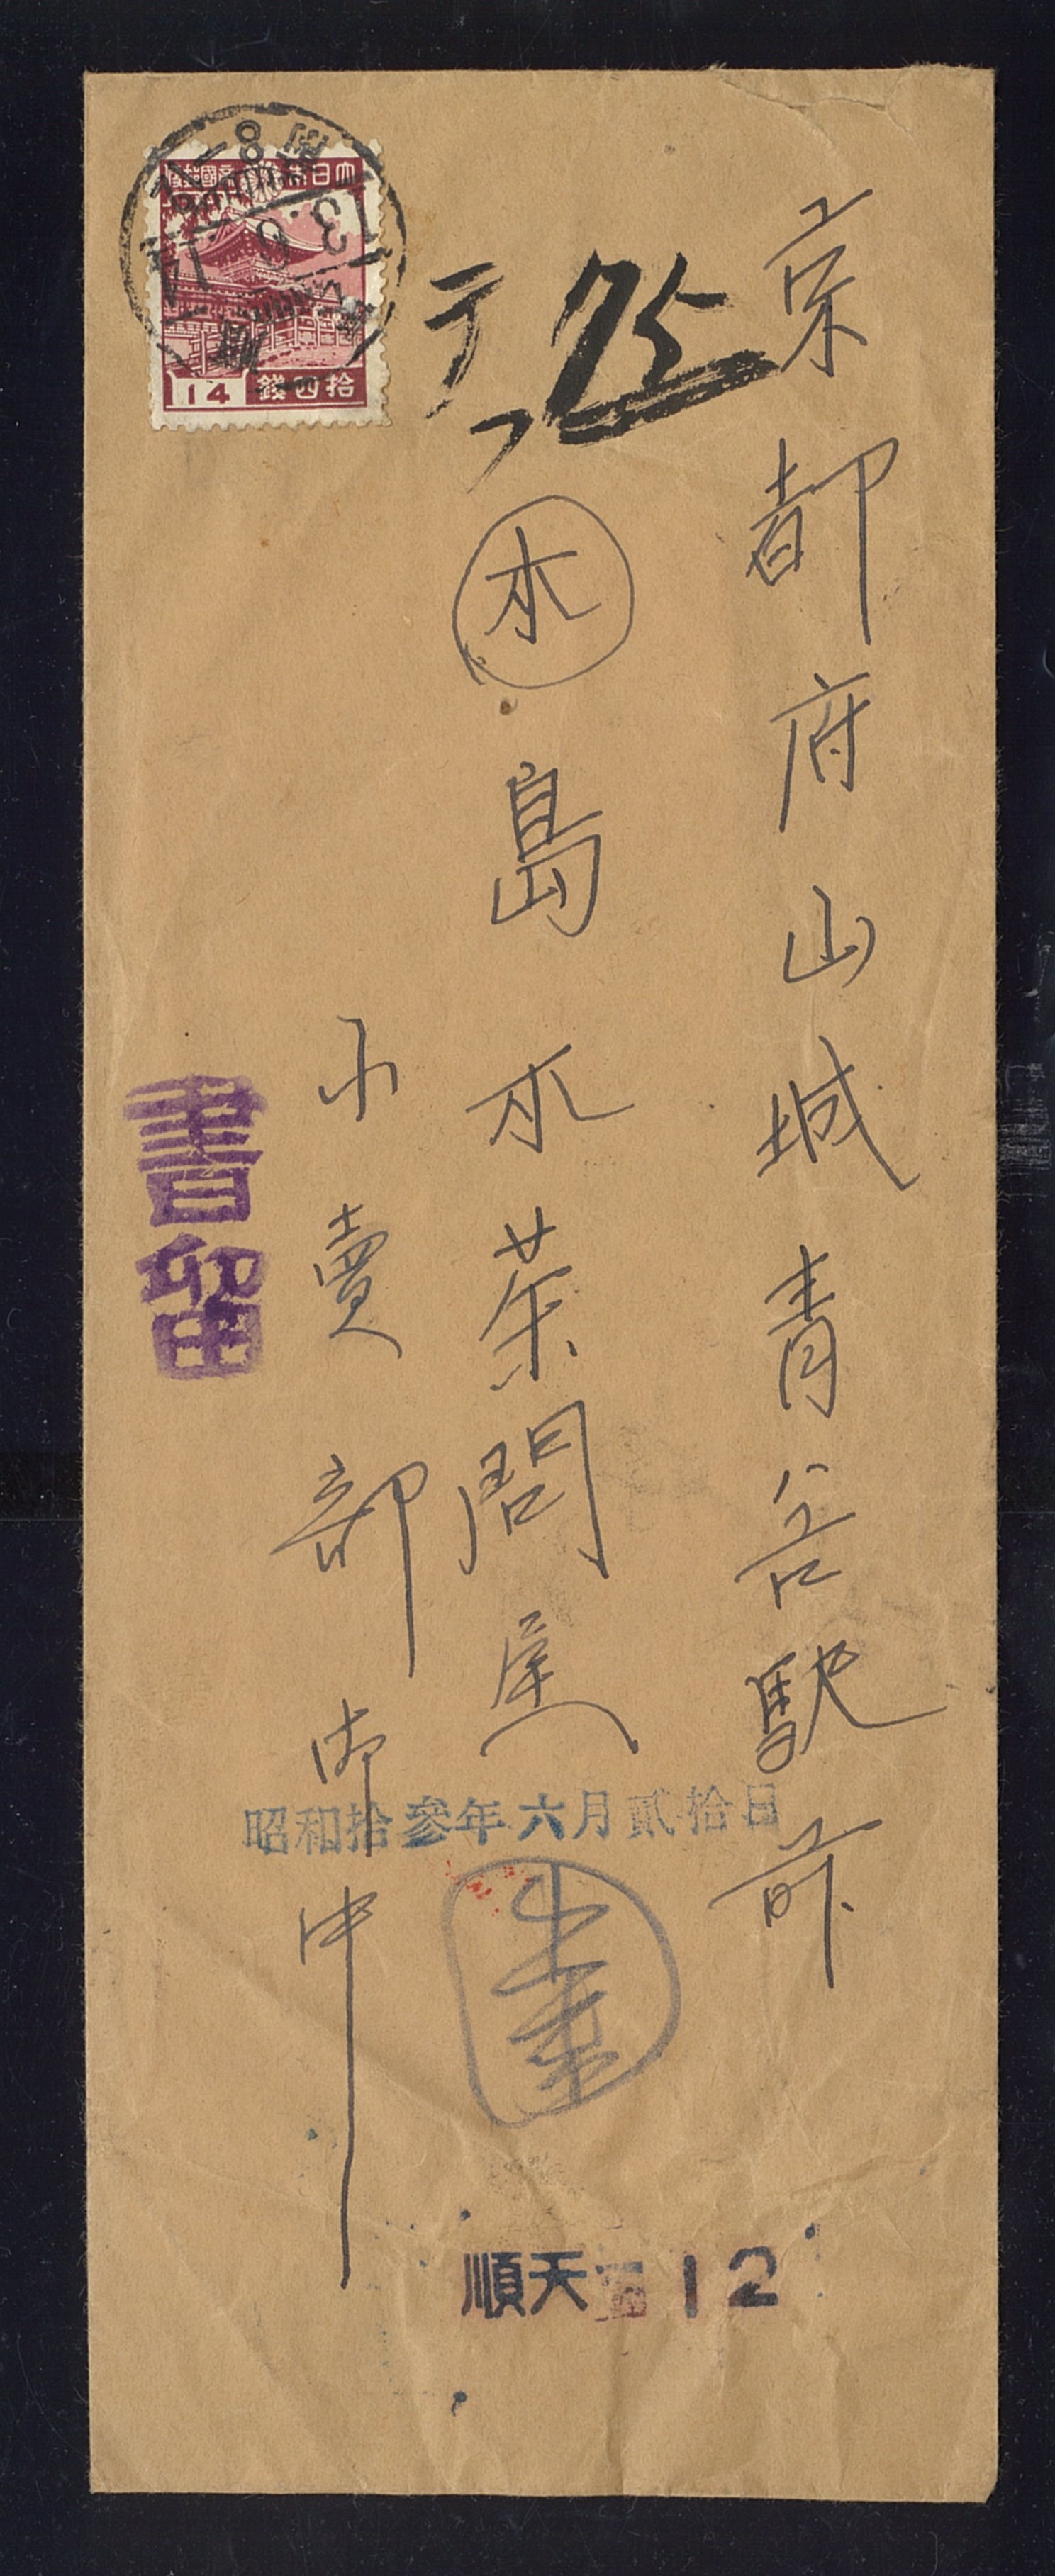 京都府山城青谷駅前
テ 75
㋭ 島水茶問屋
小賣部御中
書留
大日本帝國郵便
14 拾四錢
13.6.14
昭和拾參年六月貳拾日
順天 12